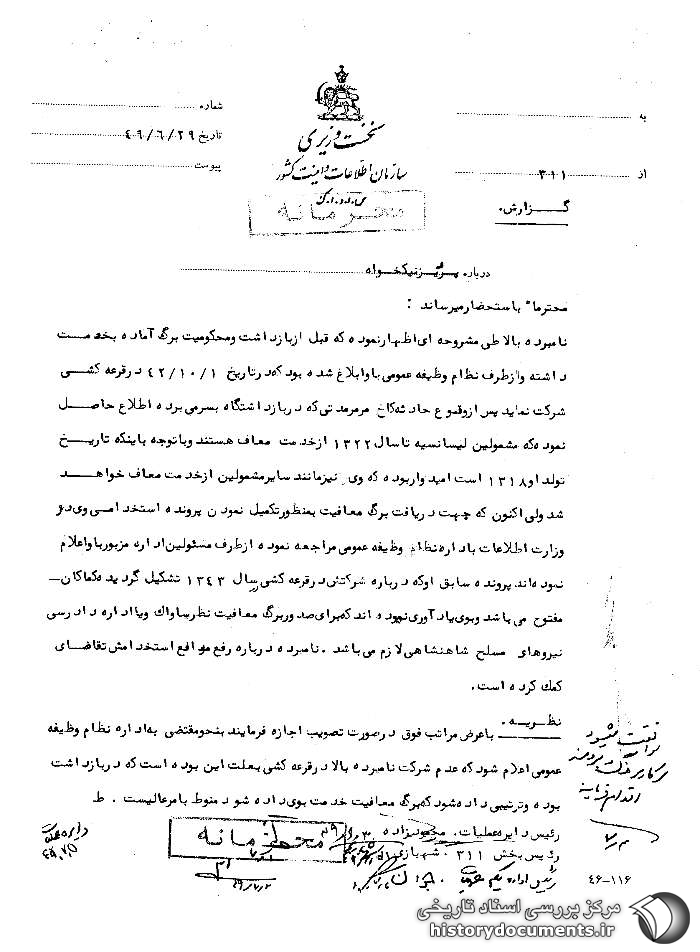 به
از ۳۱۱
گزارش
نخست وزیری
سازمان اطلاعات و امنیت کشور
س.ا.و.ا.ک
محرمانه
شماره
تاریخ ۴۹/۶/۲۹
پیوست
درباره پرویز نیکخواه
محترما" باستحضار میرساند :
نامبرده بالا طی مشروحه ای اظهار نموده که قبل از بازداشت و محکومیت برگ آماده بخدمت
داشته و از طرف نظام وظیفه عمومی باو ابلاغ شده بود که در تاریخ ۴۲/۱۰/۱ در قرعه کشی
شرکت نماید پس از وقوع حادثه کاخ مرمر مدتی که در بازداشتگاه بسر می برده اطلاع حاصل
نموده که مشمولین لیسانسیه تا سال ۱۳۲۲ از خدمت معاف هستند و با توجه باینکه تاریخ
تولد او ۱۳۱۸ است امیدوار بوده که وی نیز مانند سایر مشمولین از خدمت معاف خواهد
شد ولی اکنون که جهت دریافت برگ معافیت بمنظور تکمیل نمودن پرونده استخدامی وی در
وزارت اطلاعات باداره نظام وظیفه عمومی مراجعه نموده از طرف مسئولین اداره مزبور باو اعلام
نموده اند پرونده سابق او که درباره شرکتش در قرعه کشی سال ۱۳۴۳ تشکیل گردیده کماکان
مفتوح می باشد و بوی یادآوری نموده اند که برای صدور برگ معافیت نظر ساواک و یا اداره دادرسی
نیروهای مسلح شاهنشاهی لازم می باشد . نامبرده درباره رفع موانع استخدامش تقاضای
کمک کرده است .
نظریه .
با عرض مراتب فوق در صورت تصویب اجازه فرمایند بنحو مقتضی به اداره نظام وظیفه
عمومی اعلام شود که عدم شرکت نامبرده بالا در قرعه کشی بعلت این بوده است که در بازداشت
بوده و ترتیبی داده شود که برگ معافیت خدمت بوی داده شود منوط بامر عالیست . ط
رئیس دایره عملیات .
رئیس بخش ۳۱۱ . شهبازی
رئیس اداره یکم عملیات
محرمانه
۴۶-۱۱۶
مرکز بررسی اسناد تاریخی
historydocuments.ir